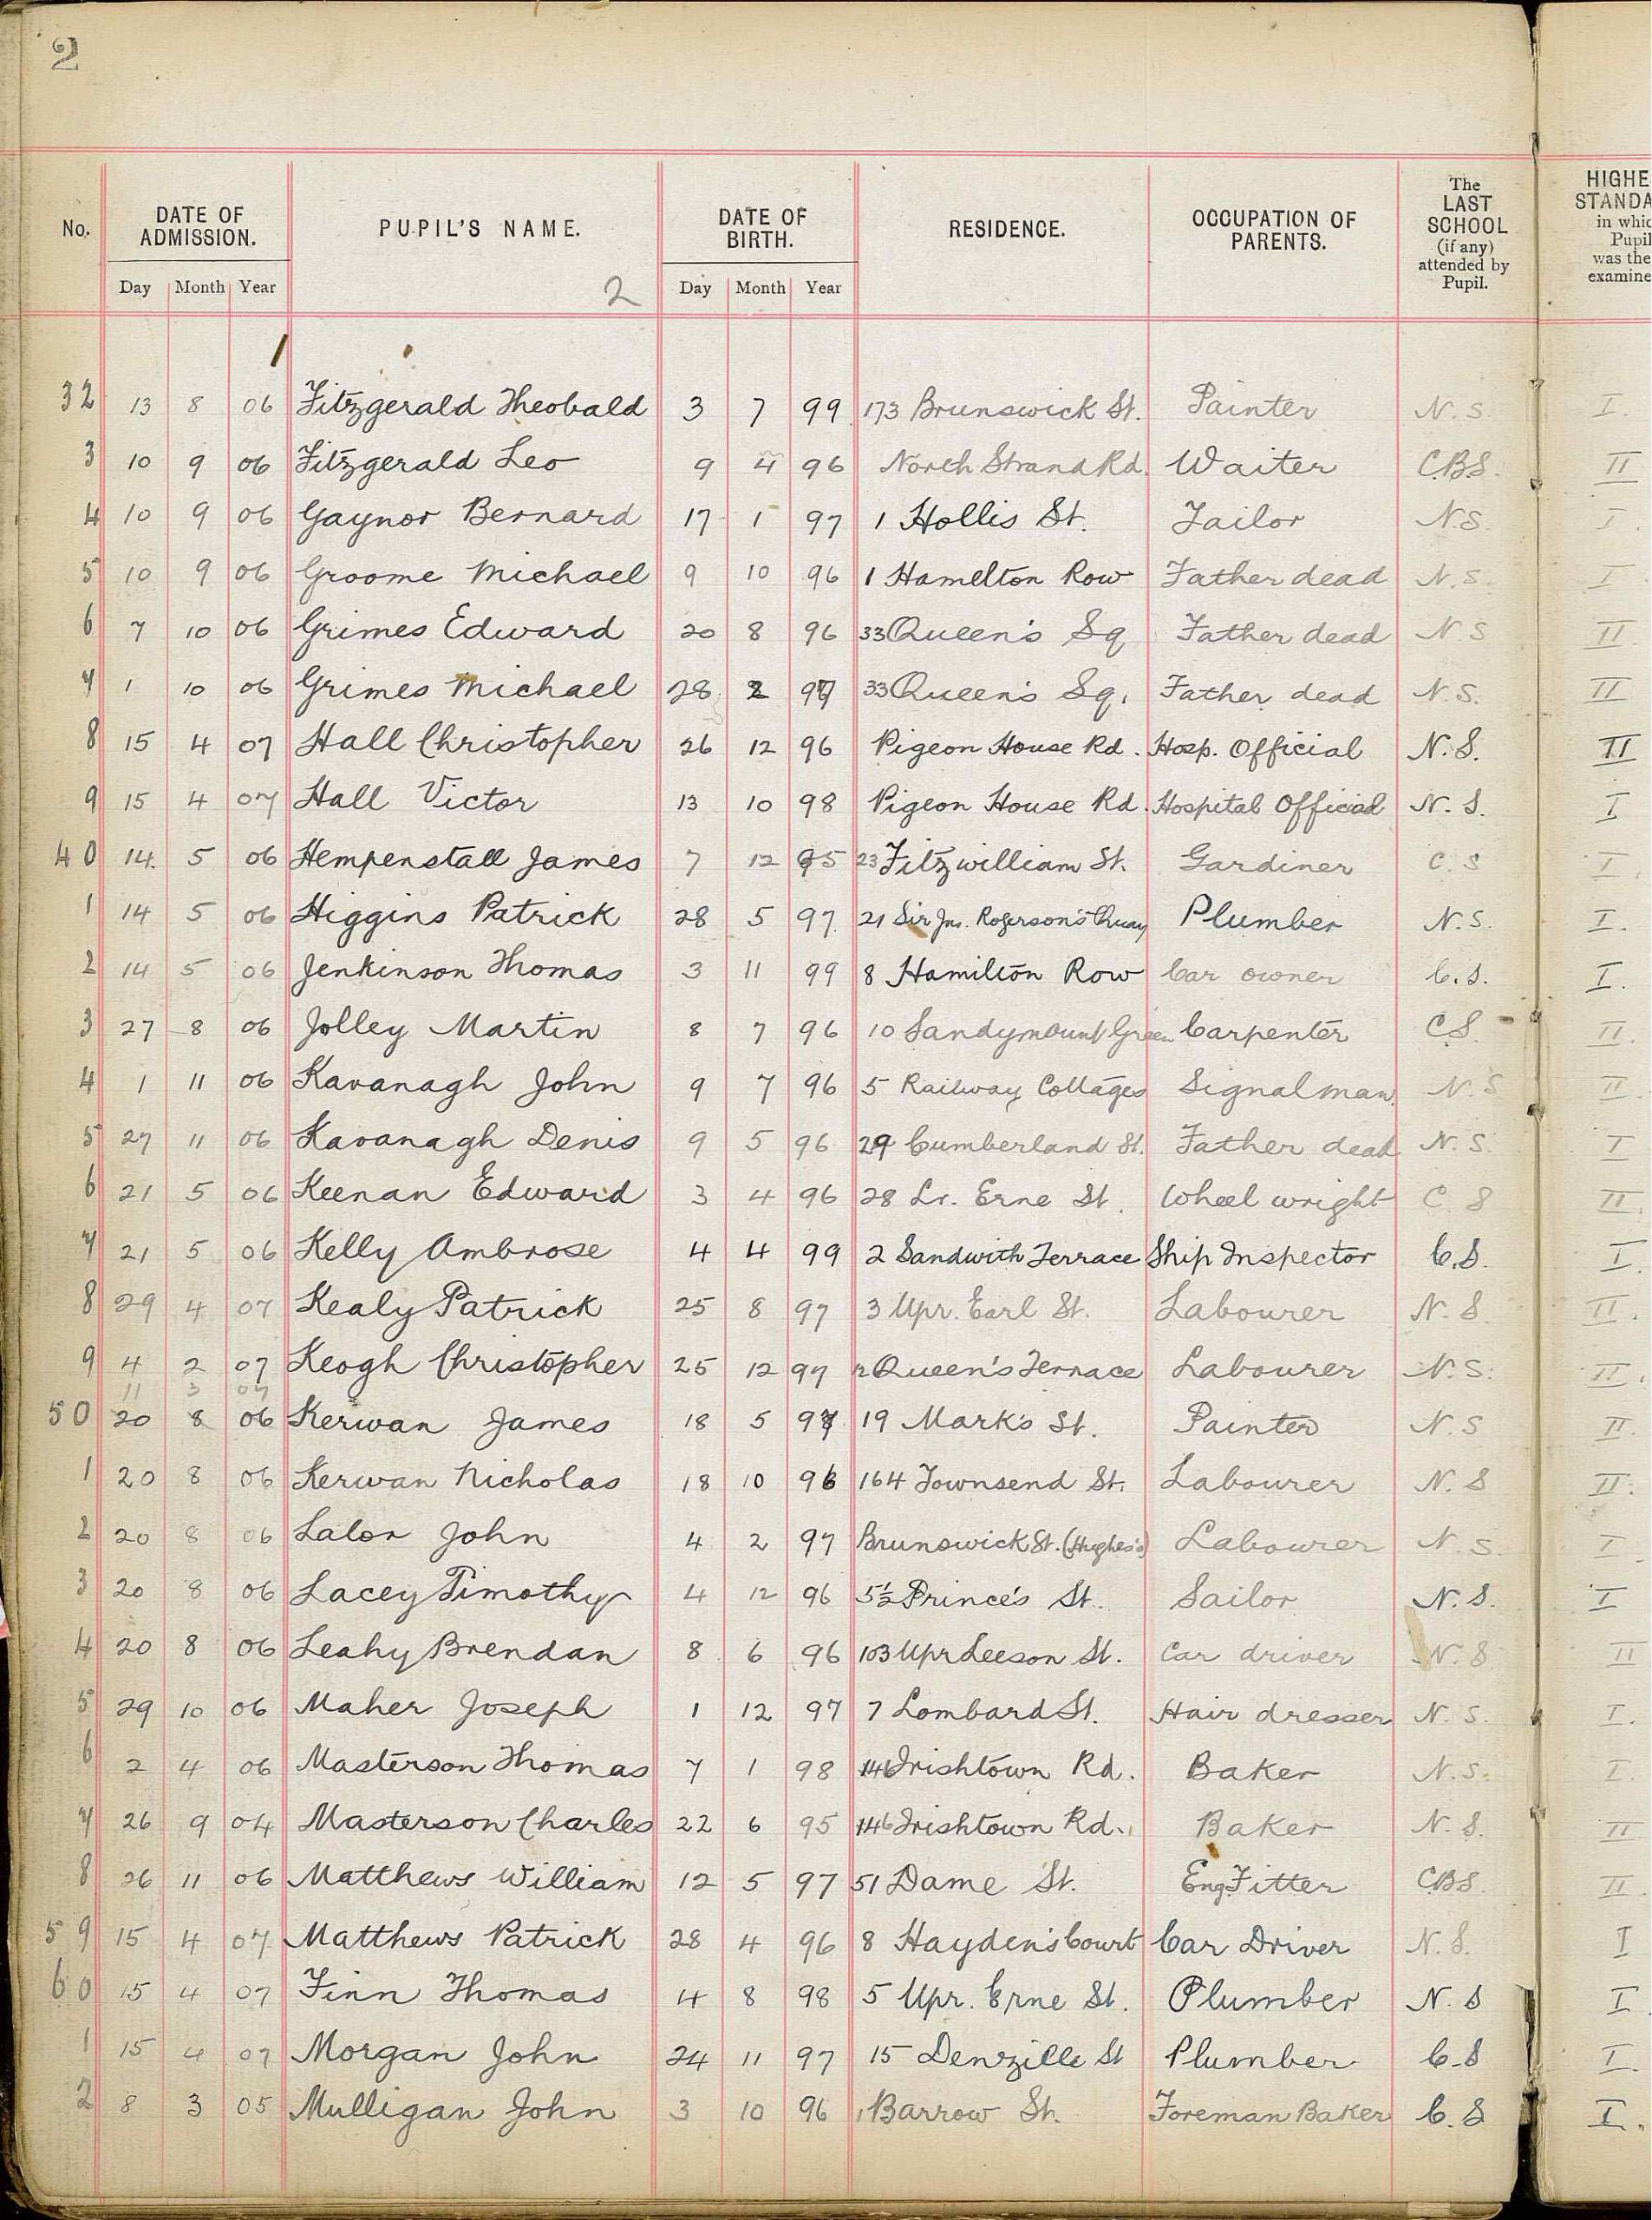 2
No. DATE OF ADMISSION. PUPIL'S NAME. DATE OF BIRTH. RESIDENCE. OCCUPATION OF PARENTS. The LAST SCHOOL (if any) attended by Pupil. HIGHE STANDA in whic Pupil was the examine
Day Month Year 2 Day Month Year
32 13 8 06 Fitzgerald Theobald 3 7 99 173 Brunswick St. Painter N.S. I.
3 10 9 06 Fitzgerald Leo 9 4 96 North Strand Rd. Waiter C.B.S. II
4 10 9 06 Gaynor Bernard 17 1 97 1 Hollis St. Tailor N.S. I
5 10 9 06 Groome Michael 9 10 96 1 Hamelton Row Father dead N.S. I
6 7 10 06 Grimes Edward 20 8 96 33 Queen's Sq Father dead N.S II
7 1 10 06 Grimes Michael 28 2 97 33 Queen's Sq. Father dead N.S. II
8 15 4 07 Hall Christopher 26 12 96 Pigeon House Rd. Hosp. Official N.S. II
9 15 4 07 Hall Victor 13 10 98 Pigeon House Rd. Hospital Official N.S. I
40 14. 5 06 Hempenstall James 7 12 95 23 Fitzwilliam St. Gardiner C.S I.
1 14 5 06 Higgins Patrick 28 5 97. 21 Sir Jno. Rogerson's Quay Plumber N.S. I.
2 14 5 06 Jenkinson Thomas 3 11 99 8 Hamilton Row Car owner C.S. I.
3 27 8 06 Jolley Martin 8 7 96 10 Sandymount Green Carpenter C.S. II.
4 1 11 06 Kavanagh John 9 7 96 5 Railway Cottages Signalman. N.S II.
5 27 11 06 Kavanagh Denis 9 5 96 29 Cumberland St. Father dead N.S. I
6 21 5 06 Keenan Edward 3 4 96 28 Lr. Erne St. Wheel wright C S II.
7 21 5 06 Kelly Ambrose 4 4 99 2 Sandwith Terrace Ship Inspector C.S. I.
8 29 4 07 Kealy Patrick 25 8 97 3 Upr. Earl St. Labourer N.S. II.
9 4 2 07 Keogh Christopher 25 12 97 12 Queen's Terrace Labourer N.S. II.
11 3 07
50 20 8 06 Kerwan James 18 5 97 19 Mark's St. Painter N.S II.
1 20 8 06 Kerwan Nicholas 18 10 96 164 Townsend St. Labourer N.S II.
2 20 8 06 Lalor John 4 2 97 Brunswick St. (Hughes's) Labourer N.S. I
3 20 8 06 Lacey Timothy 4 12 96 5½ Prince's St. Sailor N.S. I
4 20 8 06 Leahy Brendan 8 6 96 103 Upr Leeson St. Car driver N.S II
5 29 10 06 Maher Joseph 1 12 97 7 Lombard St. Hair dresser N.S. I.
6 2 4 06 Masterson Thomas 7 1 98 146 Irishtown Rd. Baker N.S. I.
7 26 9 04 Masterson Charles 22 6 95 146 Irishtown Rd. Baker N.S. II
8 26 11 06 Matthews William 12 5 97 51 Dame St. Eng. Fitter CBS. II.
59 15 4 07 Matthews Patrick 28 4 96 8 Hayden's Court Car Driver N.S. I
60 15 4 07 Finn Thomas 4 8 98 5 Upr. Erne St. Plumber N.S I
1 15 4 07 Morgan John 24 11 97 15 Denzille St Plumber C.S I.
2 8 3 05 Mulligan John 3 10 96 1 Barrow St. Foreman Baker C.S I.